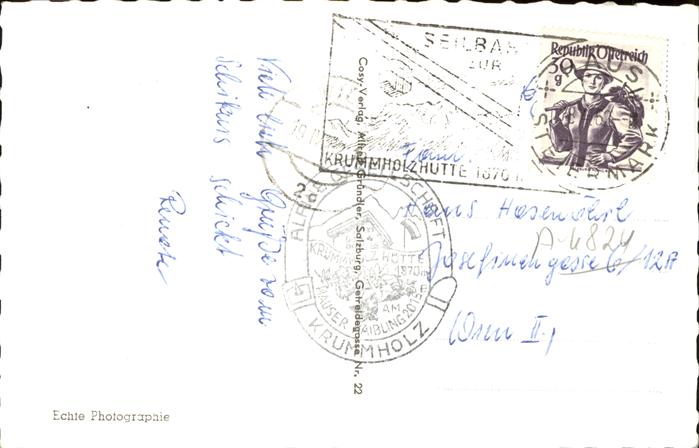 Viele liebe Grüße vom
Schikurs schickt
Renate
Echte Photographie
Cosy-Verlag, Alfred Gründler, Salzburg, Getreidegasse Nr. 22
SEILBAHN
ZUR
KRUMMHOLZHÜTTE 1870 m
Republik Österreich
30
g
STEIERMARK
KRUMMHOLZHÜTTE
1870m
AM
HAUSER KAIBLING 2015
KRUMMHOLZ
Fam.
Hans Hasenöhrl
A-4824
Josefinengasse 6/12A
Wien II.,